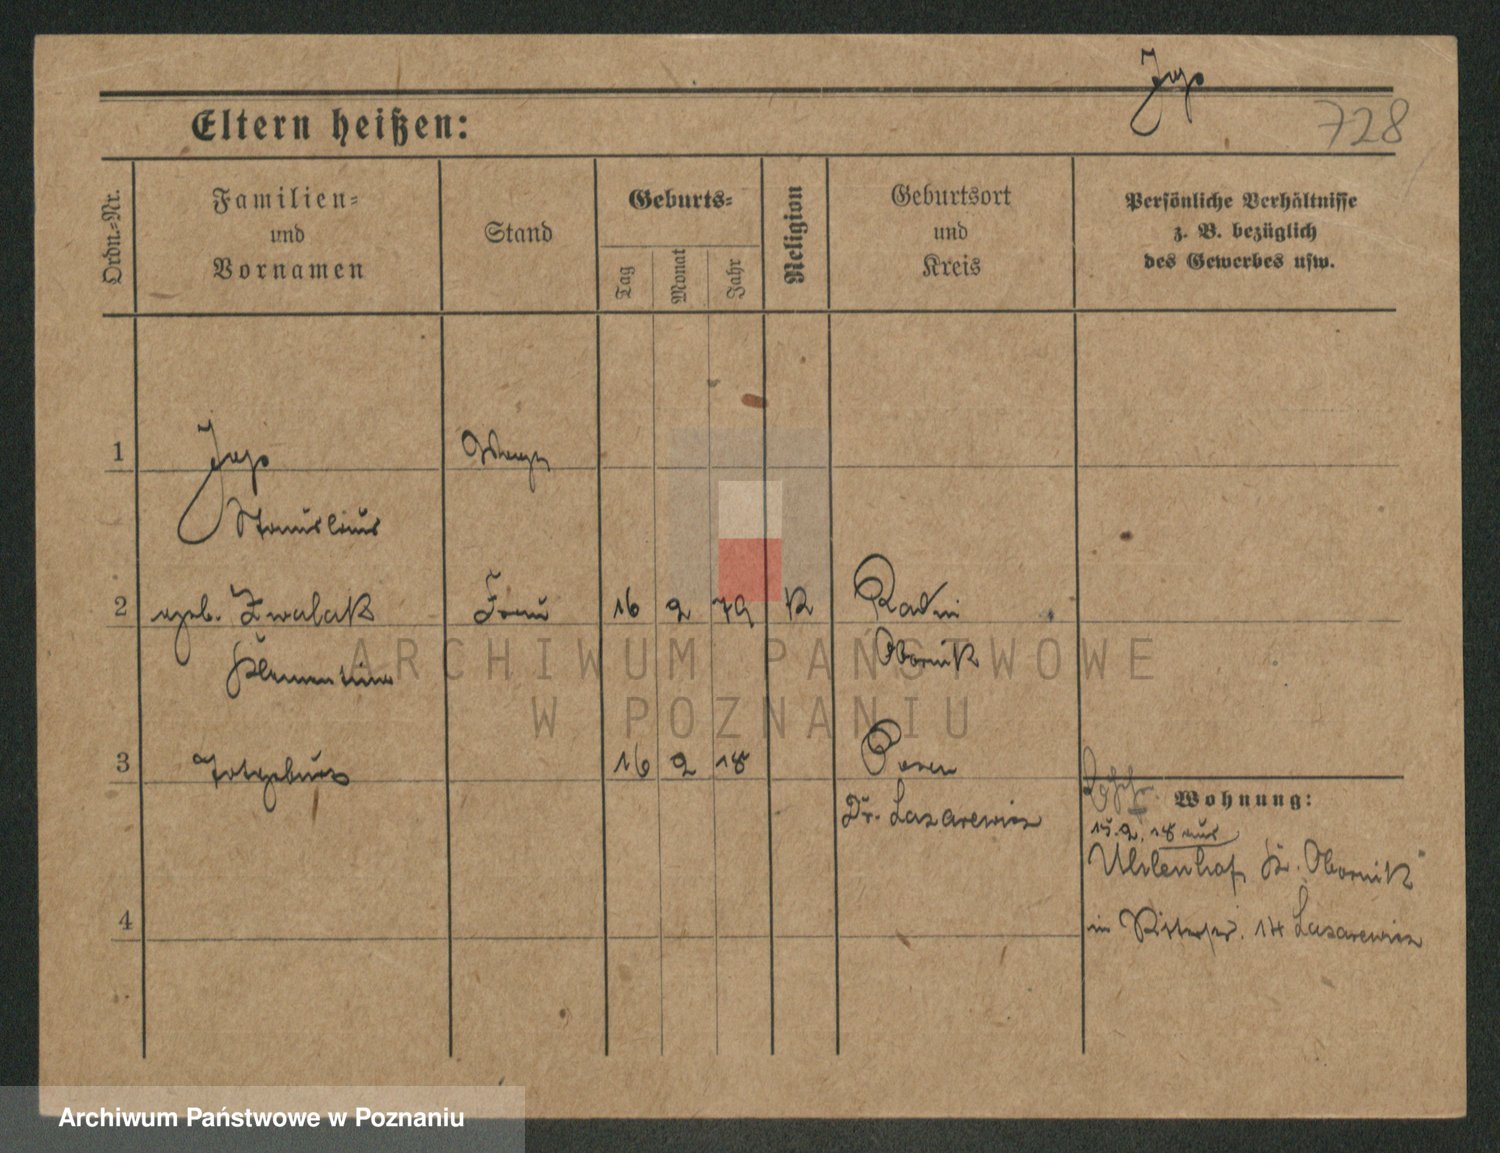 Jop
728
Eltern heißen:
Ordn.-Nr.
Familien-
und
Vornamen
Stand
Geburts-
Tag
Monat
Jahr
Religion
Geburtsort
und
Kreis
Persönliche Verhältnisse
z. B. bezüglich
des Gewerbes usw.
1
Jop
Stanislaus
2 geb. Zwalak Frau 16 2 79 K
Obornik
3 Totgeburt 16 2 18 Posen
Dr. Lazarewicz
Wohnung:
15.2.18 aus
Uhlenhof, Kr. Obornik
in Ritterstr. 14 Lazarewicz
4
ARCHIWUM PAŃSTWOWE
W POZNANIU
Archiwum Państwowe w Poznaniu